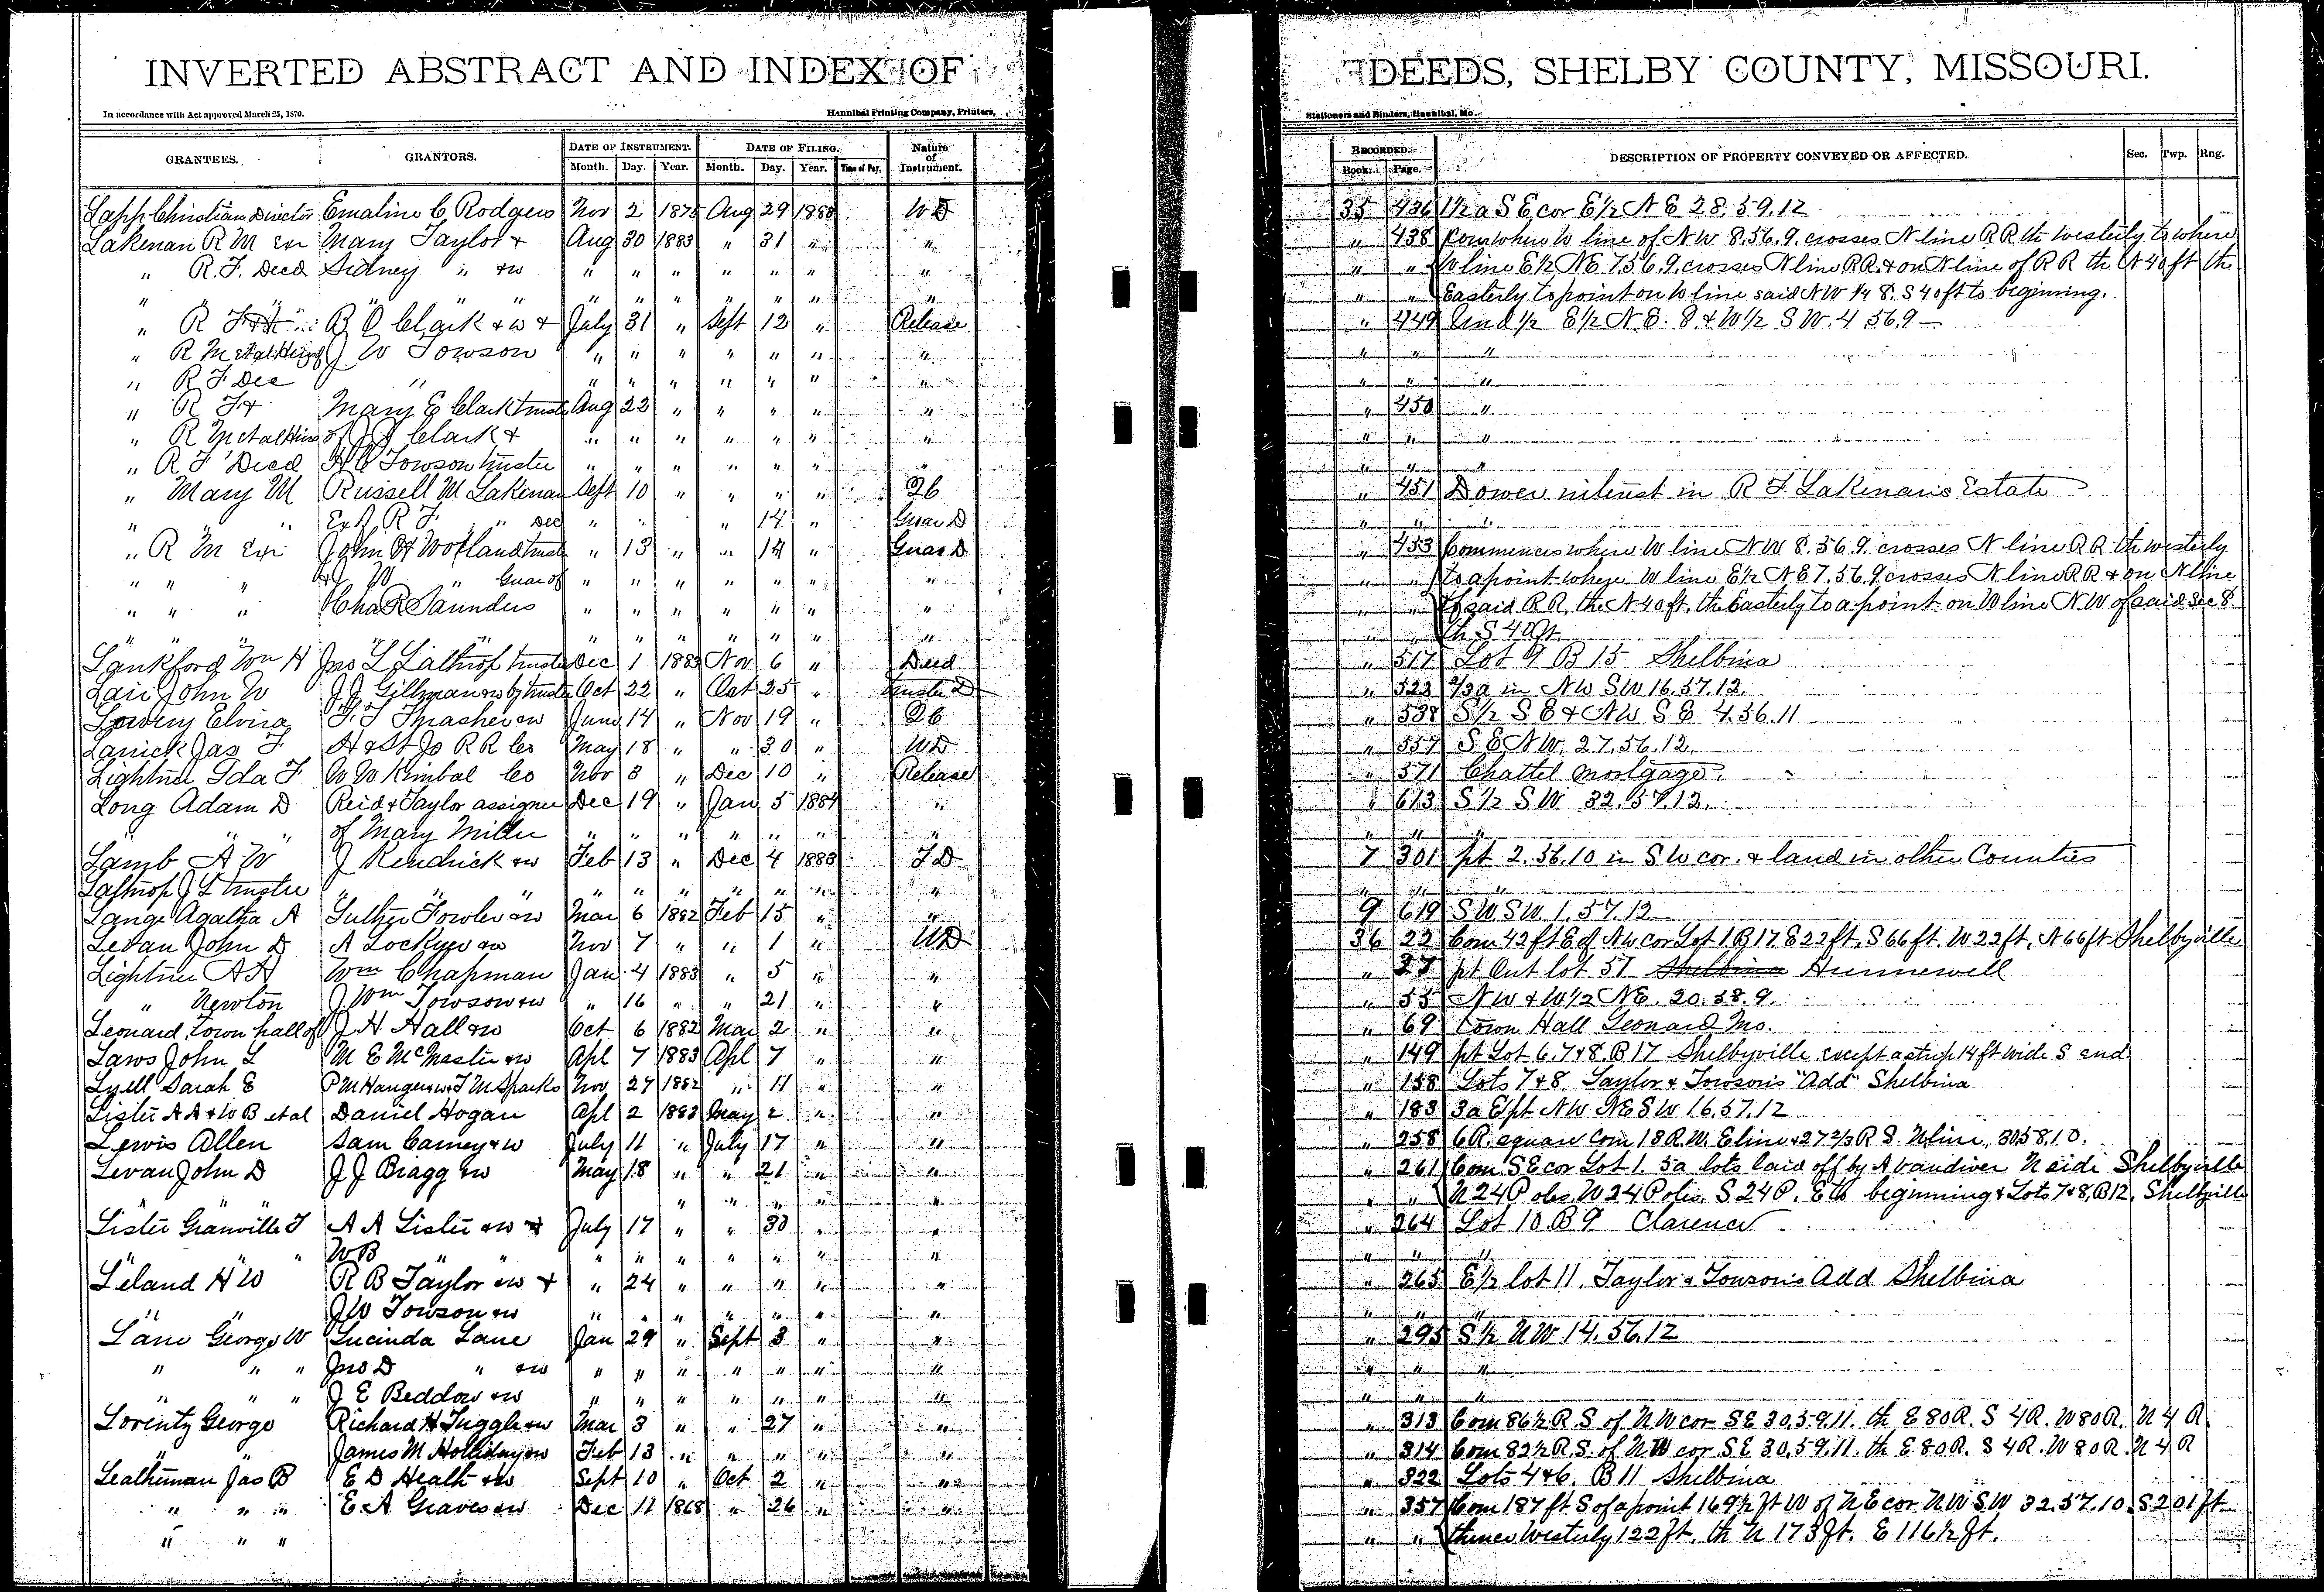 INVERTED ABSTRACT AND INDEX OF DEEDS, SHELBY COUNTY, MISSOURI.
In accordance with Act approved March 25, 1870. Hannibal Printing Company, Printers, Stationers and Binders, Hannibal, Mo.
GRANTEES. GRANTORS. DATE OF INSTRUMENT. DATE OF FILING. Nature of Instrument. RECORDED. DESCRIPTION OF PROPERTY CONVEYED OR AFFECTED. Sec. Twp. Rng.
Month. Day. Year. Month. Day. Year. Time of Day. Book. Page.
Lapp Christian Director Emaline C. Rodgers Nov 2 1875 Aug 29 1883 W D 35 436 1/2 a S E cor E 1/2 N E 28.59.12
Lakenan R M Exr Mary Taylor & Aug 30 1883 " 31 " " " 438 Com where W line of N W 8.56.9. crosses N line R R th westerly to where
" R. F. Decd Sidney " &w " " " " " " " " " W line E 1/2 N E 7.56.9. crosses N line R R. & on N line of R R th N 40 ft th
" " " " " " " " " " " " " " Easterly to point on W line said N W 1/4 8. S 40 ft to beginning.
" R F B O Clark & w & July 31 " Sept 12 " Release " 449 Und 1/2 E 1/2 N. E. 8 & W 1/2 S W. 4 56.9
" R M et al Heirs of J W Towson " " " " " " " " " "
" R F Dec " " " " " " " " " " "
" R F & Mary E Clark trustee Aug 22 " " " " " " 450 "
" R M et al Heirs of J J Clark & " " " " " " " " " "
" R F Decd H C Towson trustee " " " " " " " " " "
" Mary M Russell M Lakenan Sept 10 " " " " Q C " 451 Dower interest in R F Lakenans Estate
" " " Ex of R F " Dec " " " 14 " Guar D " " "
" R M Exr John H Wofland trust " 13 " " 14 " Guar D " 453 Commences where W line N W 8.56.9. crosses N line R R th westerly
" " " & J W " Guar of " " " " " " " " " to a point where W line E 1/2 N E 7.56.9 crosses N line R R & on N line
" " " Chas R Saunders " " " " " " " " " of said R R. the N 40 ft. the Easterly to a point on W line N W of said Sec 8.
" " " " " " " " " " " " " " th S 40 ft.
Lankford Wm H Jno L Lathrop trustee Dec 1 1883 Nov 6 " Deed " 517 Lot 9 B 15 Shelbina
Lair John W J J Gillman & w by trustee Oct 22 " Oct 25 " Trustee D " 522 2/3 a in N W S W 16.57.12.
Lowery Elvira F. F Thrasher & w June 14 " Nov 19 " Q C " 538 S 1/2 S E & N W S E 4.56.11
Larrick Jas F H & St Jo R R Co May 18 " " 30 " W D " 557 S E N W. 27.56.12.
Lightner Ida F W W Kimbal Co Nov 3 " Dec 10 " Release " 571 Chattel Mortgage.
Long Adam D Reid & Taylor assignee Dec 19 " Jan 5 1884 " " 613 S 1/2 S W 32.57.12.
" " " of Mary Miller " " " " " " " " " "
Lamb A W J Kendrick & w Feb 13 " Dec 4 1883 T D 7 301 pt 2.56.10 in S W cor. & land in other Counties
Lathrop J L trustee " " " " " " " " " " " " "
Lange Agatha A Luther Fowler & w Mar 6 1882 Feb 15 " " 9 619 S W S W 1.57.12
Levan John D A Lockyer & w Nov 7 " " 1 " W D 36 22 Com 42 ft E of N W cor Lot 1. B 17. E 22 ft. S 66 ft. W 22 ft, N 66 ft Shelbyville
Lightner A A Wm Chapman Jan 4 1883 " 5 " " " 27 pt Out lot 57 Shelbina Hunnewell
" Newton J Wm Towson & w " 16 " " 21 " " " 55 N W & W 1/2 N E. 20.58.9.
Leonard, town hall of J H Hall & w Oct 6 1882 Mar 2 " " " 69 Town Hall Leonard Mo.
Laws John L M E McMaster & w Apl 7 1883 Apl 7 " " " 149 pt Lot 6, 7 & 8. B 17 Shelbyville except a strip 14 ft wide S end
Lyell Sarah E P M Hanger & w & T M Sparks Nov 27 1882 " 11 " " " 158 Lots 7 & 8. Taylor & Towson's "Add" Shelbina
Lister A A & W B et al Daniel Hogan Apl 2 1883 May 2 " " " 183 3 a E pt N W N E S W 16.57.12
Lewis Allen Sam Carney & w July 11 " July 17 " " " 258 6 R. square Com 18 R. W. E line & 27 2/3 R S. N line, 30 58.10.
Levan John D J J Bragg & w May 18 " " 21 " " " 261 Com S E cor Lot 1. 5 a lots laid off by A Vandiver N side Shelbyville
" " " " " " " " " " N 24 Poles. W 24 Poles. S 24 P. E to beginning & Lots 7 & 8, B 12, Shelbyville
Lister Granville T A A Lister & w & July 17 " " 30 " " " 264 Lot 10 B 9 Clarence
" " " W B " " " " " " " " " " " "
Leland H W R B Taylor & w & " 24 " " " " " " 265 E 1/2 lot 11. Taylor & Towson's Add Shelbina
" " J W Towson & w " " " " " " " " " "
Lane George W Lucinda Lane Jan 29 " Sept 3 " " " 295 S 1/2 N W 14.56.12
" " " Jno D " & w " " " " " " " " " "
" " " J E Beddow & w " " " " " " " " " "
Lorentz George Richard H Tuggle & w Mar 3 " " 27 " " " 313 Com 86 1/2 R. S. of N W cor S E 30.59.11. th E 80 R. S 4 R. W 80 R. N 4 R
" James M Holliday & w Feb 13 " " " " " " 314 Com 82 1/2 R. S. of N W cor S E 30.59.11. th E. 80 R. S 4 R. W 80 R. N 4 R
Leatherman Jas B E D Healt & w Sept 10 " Oct 2 " " " 322 Lots 4 & 6. B 11 Shelbina
" " " E A Graves & w Dec 11 1868 " 26 " " " 357 Com 187 ft S of a point 169 1/2 ft W of N E cor N W S W 32.57.10. S 201 ft
" " " " " thence Westerly 122 ft. th N 173 ft. E 116 1/2 ft.